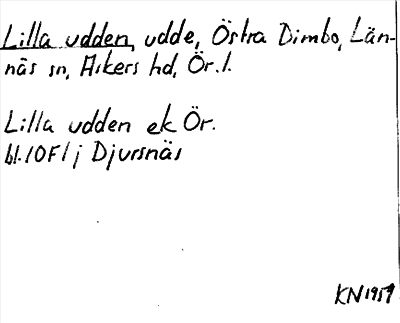 Lilla udden, udde, Östra Dimbo, Län-
näs sn, Askers hd, Ör. l.
Lilla udden ek Ör.
bl. 10F1j Djursnäs
KN 1959